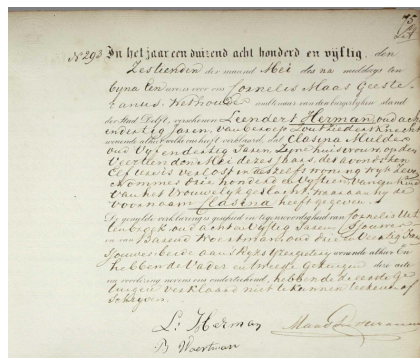 75
No 293 In het jaar een duizend acht honderd en vijftig, den
Zestienden der maand Mei des na middags ten
Cornelis Maas Geeste
ranus Wethouder Ambtenaar van den burgerlijken stand
der Stad Delft, verscheen Leendert Herman oud acht
en dertig Jaren, van beroep Knecht
wonende alhier verklaard dat Clasina Mulder
oud Vijf en dertig Jaren, Zijne huisvrouw op den
Veertienden Mei dezes Jaars, des avonds ten
Elf ure is verlost in deszelfs woning Wijk
Nommer drie honderd en Vijftien van een Kind
van het Vrouwelijk geslacht, waaraan hij de
voornaam Clasina heeft gegeven.
De gezegde verklaring is geschied in tegenwoordigheid van Cornelis
oud acht en Vijftig Jaren Sjouwer
en van Barend Woertman oud drie en Veertig Jaren
Sjouwer beide aan 's Rijks wonende alhier En
hebben de Vader en tweede Getuigen deze acte
na voorlezing nevens ons onderteekend, hebbende de eerste Ge
tuigen verklaard niet te kunnen teekenen of
Schrijven.
L: Herman
B Woertman